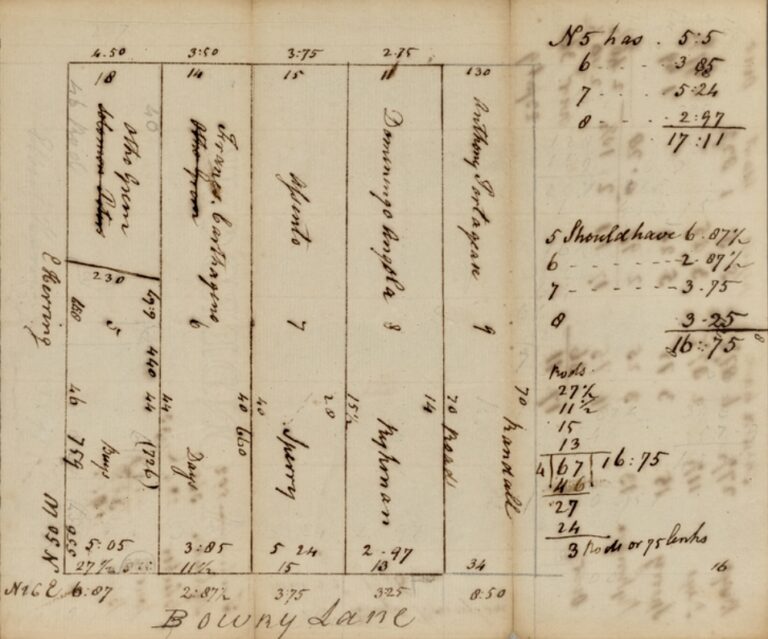 4.50 3:50 3:75 2.75
18 14 15 11 130
46 Rod
Solomon Peters
Otho Grem
40
Otho Grem
Frans. Carthageno
6
Assento
7
Domingo Angola 8
Anthony Portugies 9
E Herring
230
5
679 440 44 (726)
46 759
Bugs
44
Days
40 660
40
Sperry
28
15½
Rykman
14
70 Road
70 Randall
N 50 W
5:05 3:85 5 24 2.97
27½ 11½ 15 13 34
N 16 E 6:87 2:87½ 3.75 3.25 8:50
Bowry Lane
N 5 has . 5:5
6 - - - - 3 85
7 - - - - 5:24
8 - - - - 2:97
17:11
5 Should have 6.87½
6 - - - - - - - 2.87½
7 - - - - - - - 3.75
8 3.25
16:75
Rods
27½
11½
15
13
4 67 16:75
46
27
24
3 Rods or 75 links
16